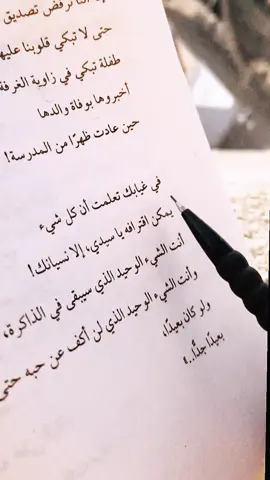 ترفض تصديق
حتى لا تبكي قلوبنا عليها
طفلة تبكي في زاوية الغرفة
أخبروها بوفاة والدها
حين عادت ظهرًا من المدرسة!
في غيابك تعلمت أن كل شيء
يمكن اقترافه يا سيدي، إلا نسيانك!
أنت الشيء الوحيد الذي سيبقى في الذاكرة،
وأنت الشيء الوحيد الذي لن أكف عن حبه حتى
ولو كان بعيدًا،
بعيدًا جدًا..